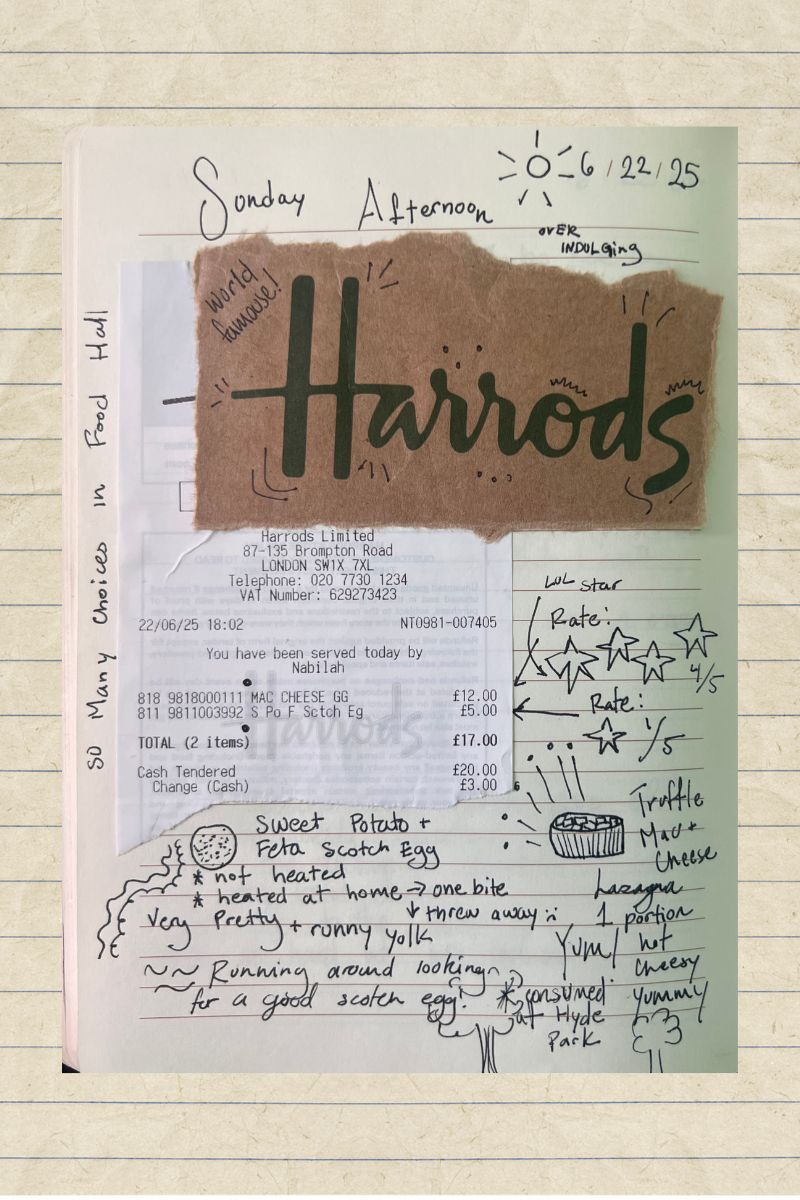 Sunday Afternoon
6/22/25
OVER
INDULGing
World
famouse!
Harrods
So Many Choices in Food Hall
Harrods Limited
87-135 Brompton Road
LONDON SW1X 7XL
Telephone: 020 7730 1234
VAT Number: 629273423
22/06/25 18:02 NT0981-007405
You have been served today by
Nabilah
818 9818000111 MAC CHEESE GG £12.00
811 9811003992 S Po F Sctch Eg £5.00
TOTAL (2 items) £17.00
Cash Tendered £20.00
Change (Cash) £3.00
Harrods
LOL star
Rate:
4/5
Rate:
1/5
Truffle
Mac +
Cheese
Lazagna
1 portion
Yum! hot
cheesy
yummy
* consumed
at Hyde
Park
Sweet Potato +
Feta Scotch Egg
* not heated
* heated at home → one bite
↓ threw away
Very Pretty + runny yolk
~~ Running around looking
for a good scotch egg!